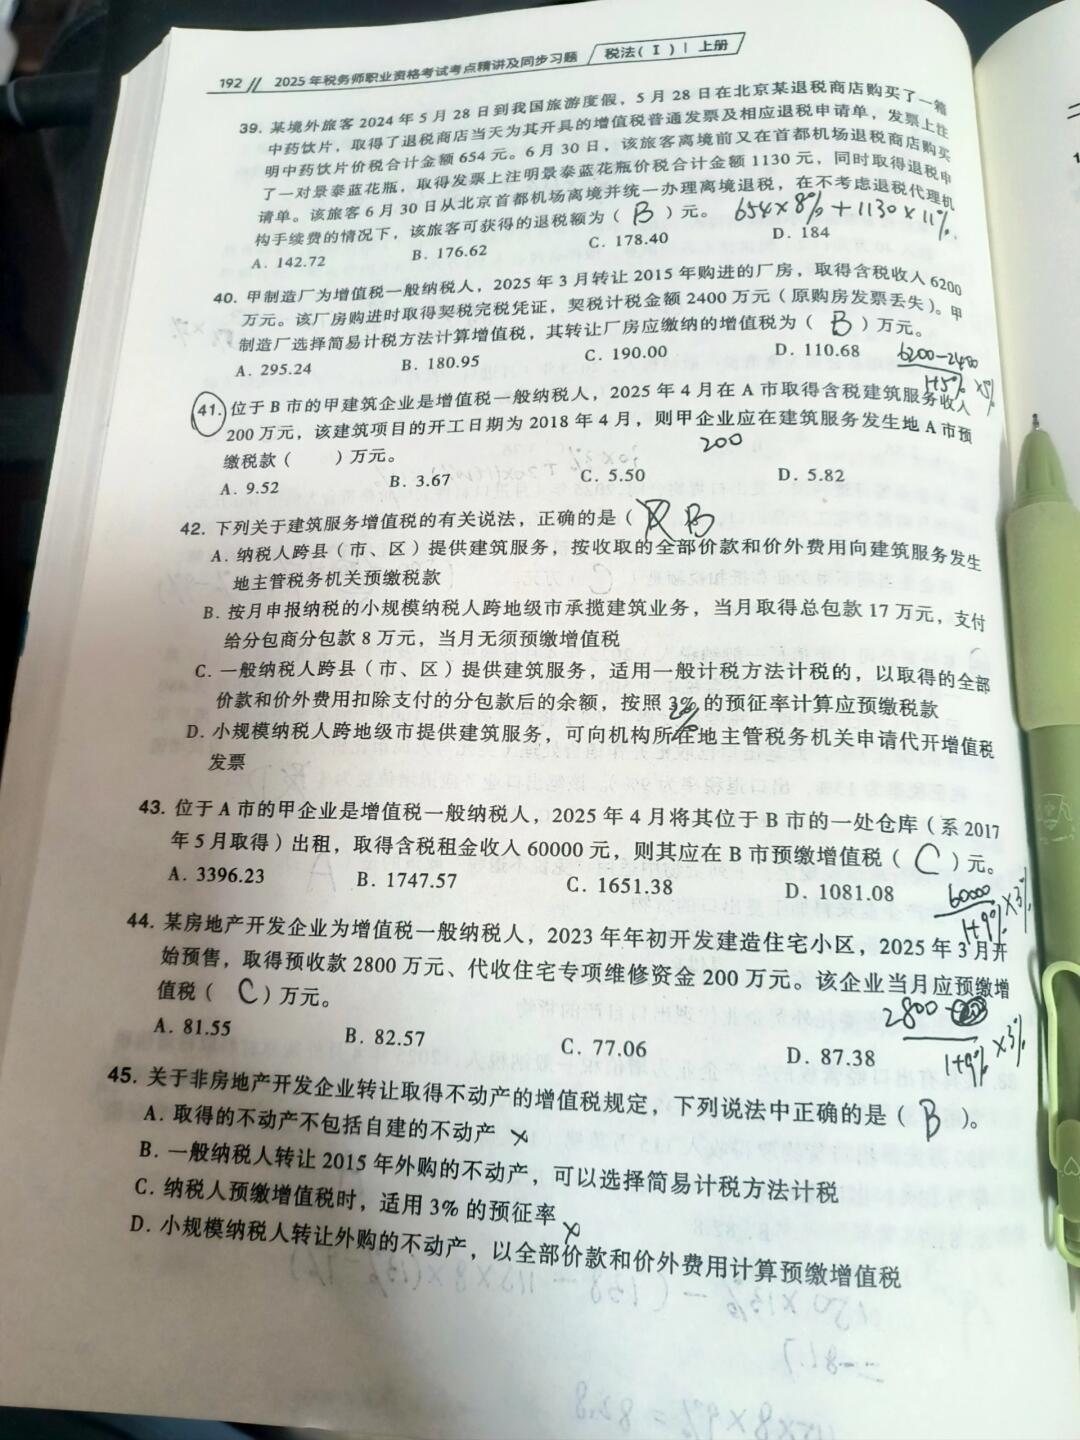 192 // 2025年税务师职业资格考试考点精讲及同步习题 税法(Ⅰ) | 上册
39. 某境外旅客2024年5月28日到我国旅游度假，5月28日在北京某退税商店购买了一箱
中药饮片，取得了退税商店当天为其开具的增值税普通发票及相应退税申请单，发票上注
明中药饮片价税合计金额654元。6月30日，该旅客离境前又在首都机场退税商店购买
了一对景泰蓝花瓶，取得发票上注明景泰蓝花瓶价税合计金额1130元，同时取得退税申
请单。该旅客6月30日从北京首都机场离境并统一办理离境退税，在不考虑退税代理机
构手续费的情况下，该旅客可获得的退税额为（ B ）元。 654×8%+1130×11%.
A. 142.72 B. 176.62 C. 178.40 D. 184
40. 甲制造厂为增值税一般纳税人，2025年3月转让2015年购进的厂房，取得含税收入6200
万元。该厂房购进时取得契税完税凭证，契税计税金额2400万元（原购房发票丢失）。甲
制造厂选择简易计税方法计算增值税，其转让厂房应缴纳的增值税为（ B ）万元。
A. 295.24 B. 180.95 C. 190.00 D. 110.68 6200-2400
1+5% ×5%
41. 位于B市的甲建筑企业是增值税一般纳税人，2025年4月在A市取得含税建筑服务收入
200万元，该建筑项目的开工日期为2018年4月，则甲企业应在建筑服务发生地A市预
缴税款（ ）万元。 200
A. 9.52 B. 3.67 C. 5.50 D. 5.82
42. 下列关于建筑服务增值税的有关说法，正确的是（ B
A. 纳税人跨县（市、区）提供建筑服务，按收取的全部价款和价外费用向建筑服务发生
地主管税务机关预缴税款
B. 按月申报纳税的小规模纳税人跨地级市承揽建筑业务，当月取得总包款17万元，支付
给分包商分包款8万元，当月无须预缴增值税
C. 一般纳税人跨县（市、区）提供建筑服务，适用一般计税方法计税的，以取得的全部
价款和价外费用扣除支付的分包款后的余额，按照3%的预征率计算应预缴税款
2%
D. 小规模纳税人跨地级市提供建筑服务，可向机构所在地主管税务机关申请代开增值税
发票
43. 位于A市的甲企业是增值税一般纳税人，2025年4月将其位于B市的一处仓库（系2017
年5月取得）出租，取得含税租金收入60000元，则其应在B市预缴增值税（ C ）元。
A. 3396.23 B. 1747.57 C. 1651.38 D. 1081.08 60000
1+9% ×3%
44. 某房地产开发企业为增值税一般纳税人，2023年年初开发建造住宅小区，2025年3月开
始预售，取得预收款2800万元、代收住宅专项维修资金200万元。该企业当月应预缴增
值税（ C ）万元。 2800-
A. 81.55 B. 82.57 C. 77.06 D. 87.38 1+9% ×3%
45. 关于非房地产开发企业转让取得不动产的增值税规定，下列说法中正确的是（ B ）。
A. 取得的不动产不包括自建的不动产 ×
B. 一般纳税人转让2015年外购的不动产，可以选择简易计税方法计税
C. 纳税人预缴增值税时，适用3%的预征率 ×
D. 小规模纳税人转让外购的不动产，以全部价款和价外费用计算预缴增值税